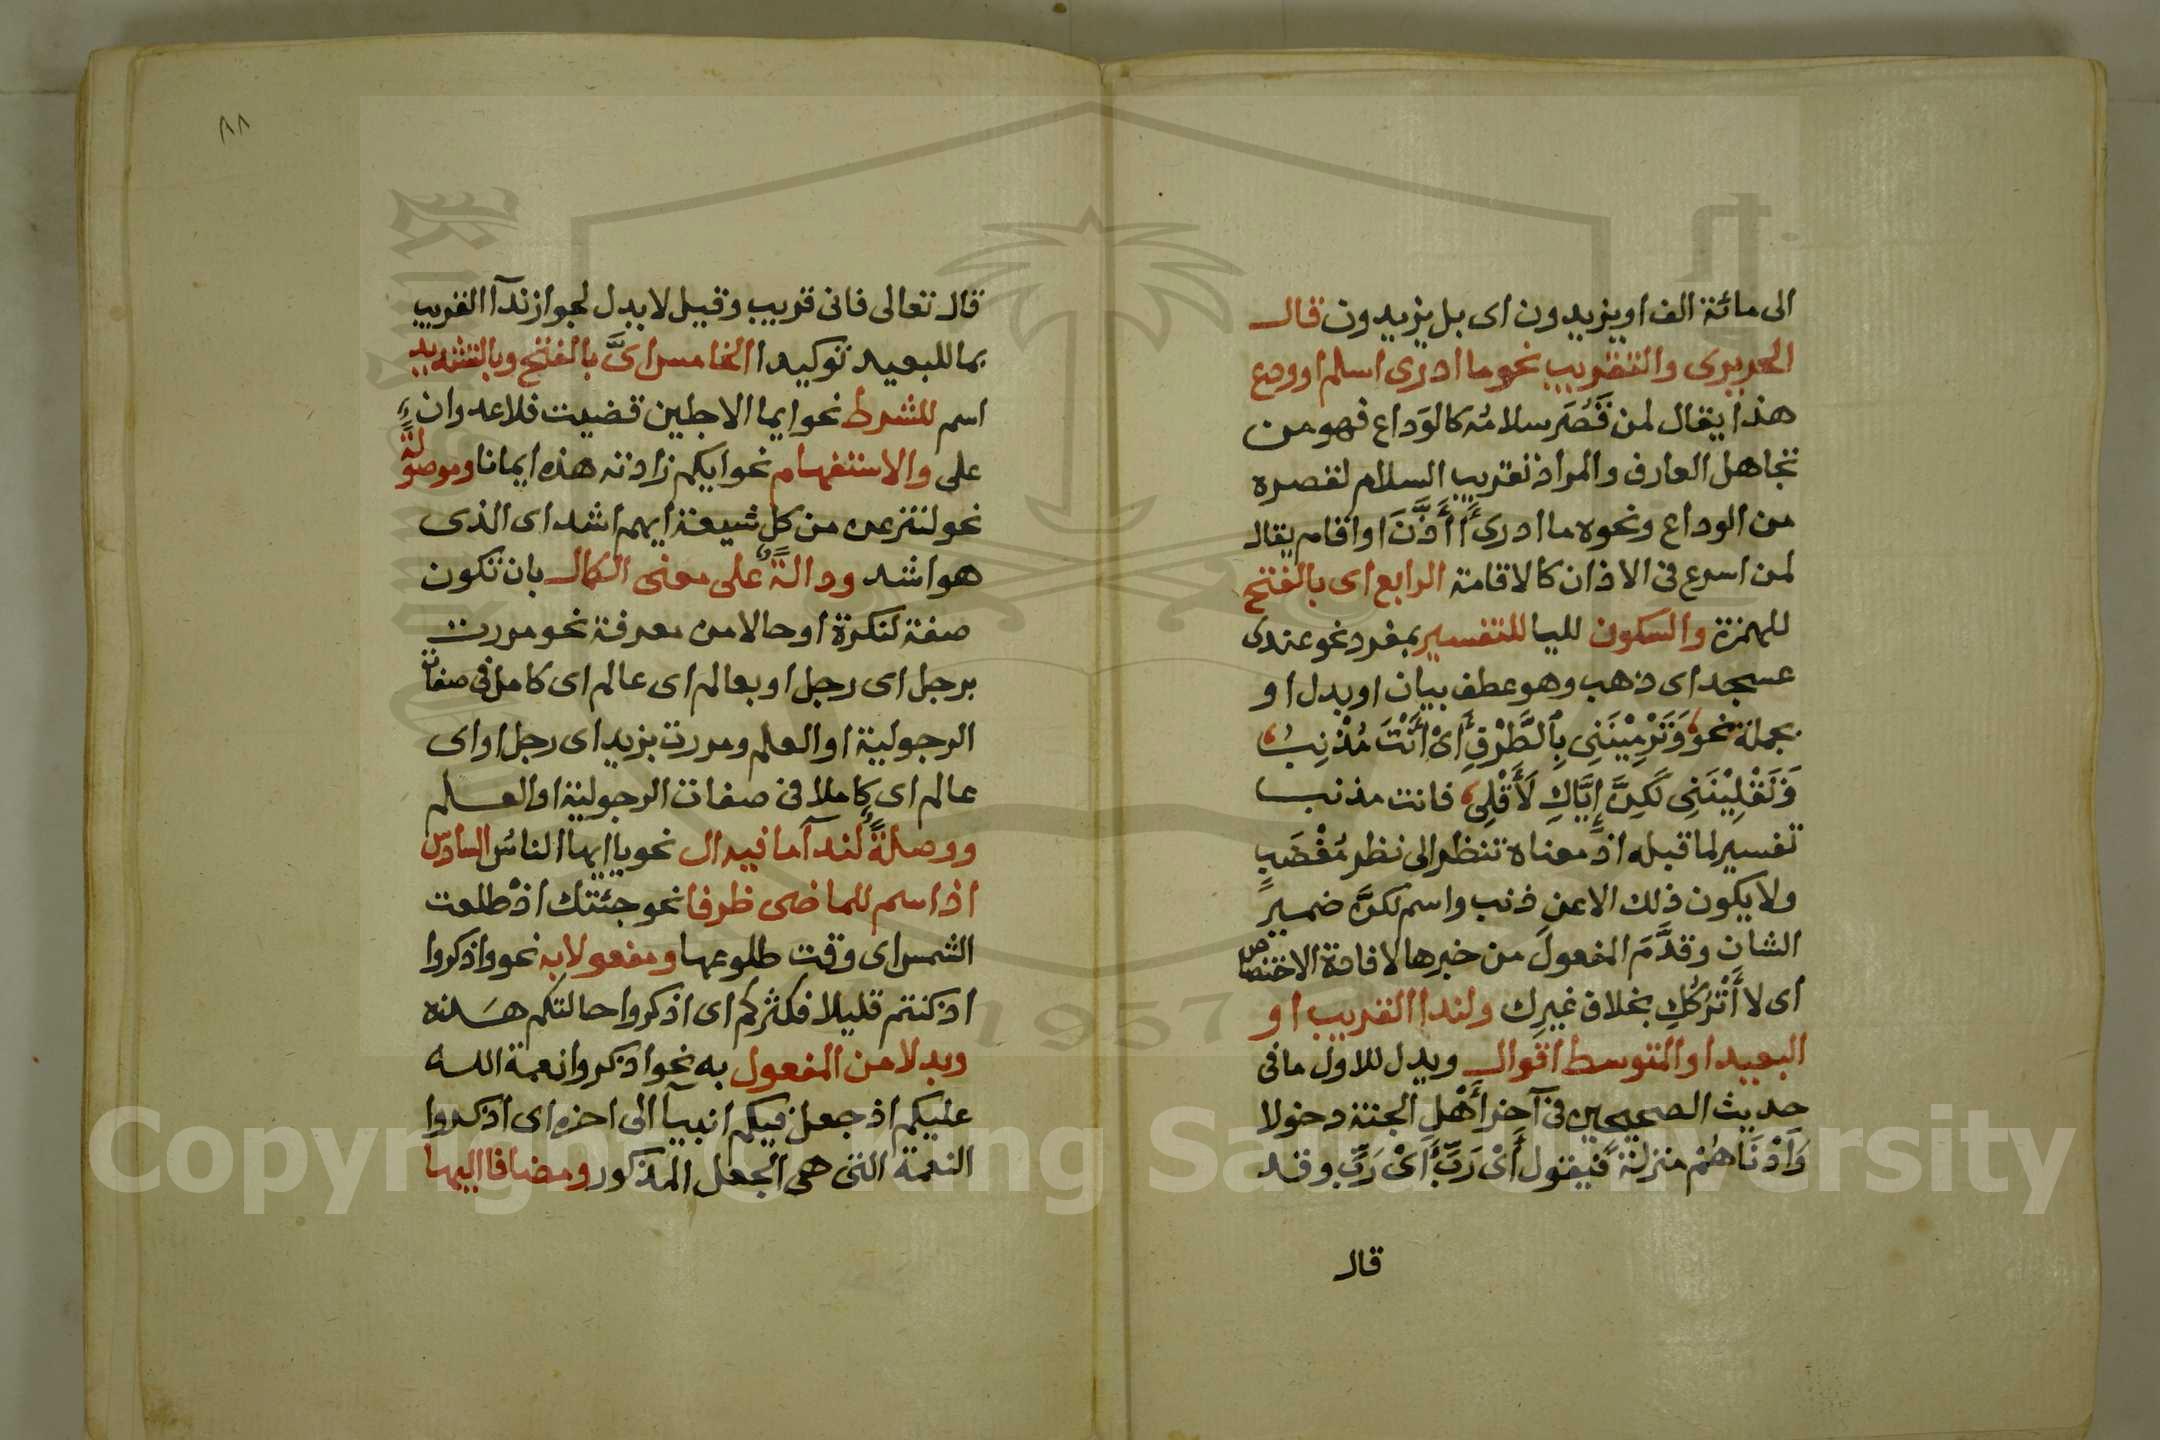 الى مائة الف او يزيدون اى بل يزيدون قال
الحريرى والتقريب نحو ما ادرى اسلم او ودع
هذا يقال لمن قَصُرَ سلامُه كالوَداع فهو من
تجاهل العارف والمراد تقريب السلام لقصره
من الوداع ونحوه ما ادرى أَأَذَّنَ او اقام يقال
لمن اسرع فى الاذان كالاقامة الرابع اى بالفتح
للهمزة والسكون لليا للتفسير بمفرد نحو عندى
عسجد اى ذهب وهو عطف بيان او بدل او
بجملة نحو وَتَرْمِيْنَنِى بِالطَّرْفِ أَىْ أَنْتَ مُذْنِبُ
وَتَقْلِيْنَنِى لَكِنَّ إِيَّاكِ لَأَقْلِى فانت مذنب
تفسير لما قبله اذ معناه تنظر الى نظر مُغْضَبٍ
ولا يكون ذلك الا عن ذنب واسم لكنَّ ضمير
الشان وقدَّمَ المفعولَ من خبرها لافادة الاختصاص
اى لا أَتْرُكُكِ بخلاف غيرِك ولندا القريب او
البعيد او المتوسط اقوال ويدل للاول ما فى
حديث الصحيحين فى آخر أَهْلِ الجنة دخولا
وَأَدْنَاهُمْ منزلةً فيقول أَىْ رَبِّ أَىْ رَبِّ وقد
قال
٨٨
قال تعالى فانى قريب وقيل لا يدل لجواز ندآ القريب
بما للبعيد توكيدا الخامس اىَّ بالفتح وبالتشديد
اسم للشرط نحو ايما الاجلين قضيت فلا عدوان
على والاستفهام نحو ايكم زادته هذه ايمانا وموصولةً
نحو لننزعن من كل شيعة ايهم اشد اى الذى
هو اشد ودالةً على معنى الكمال بان تكون
صفة لنكرة او حالا من معرفة نحو مررت
برجل اى رجل او بعالم اى عالم اى كامل فى صفات
الرجولية او العلم ومررت بزيد اى رجل او اى
عالم اى كاملا فى صفات الرجولية او العلم
ووصلةً لندآ ما فيه ال نحو يا ايها الناسُ السادس
اذ اسم للماضى ظرفا نحو جئتك اذْ طلعت
الشمس اى وقت طلوعها ومفعولا به نحو واذكروا
اذ كنتم قليلا فكثركم اى اذكروا حالتكم هذه
وبدلا من المفعول به نحو اذكروا نعمة الله
عليكم اذ جعل فيكم انبيآ الى اخره اى اذكروا
النعمة التى هى الجعل المذكور ومضافا اليها
Copyright © King Saud University
1957